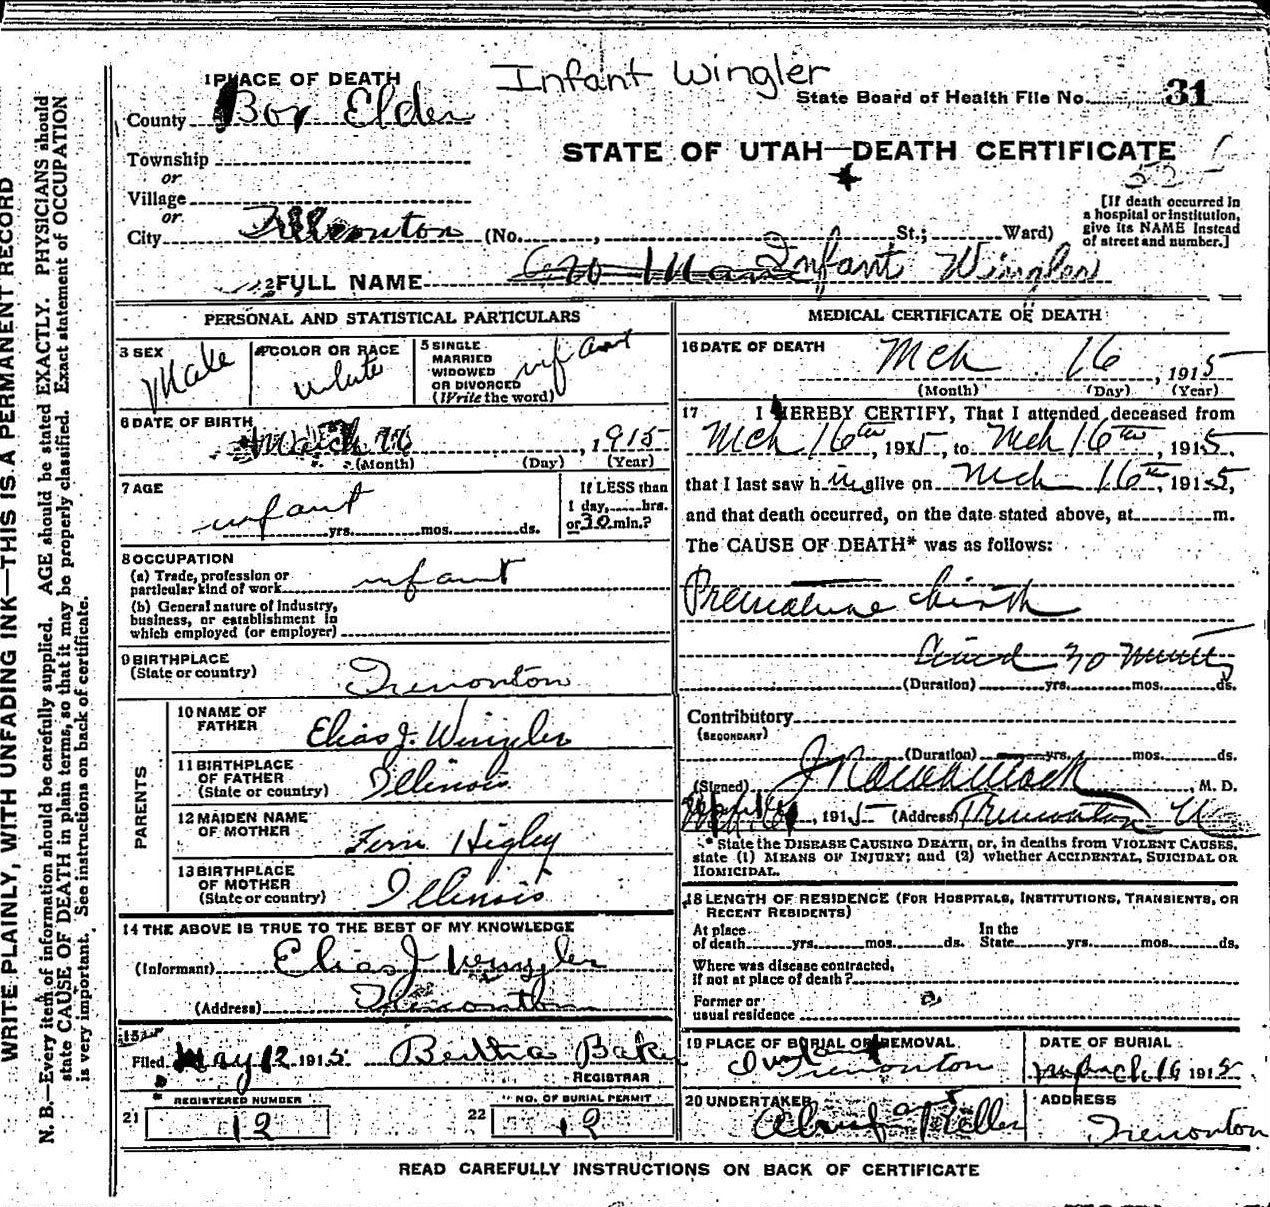 Infant Wingler
1 PLACE OF DEATH
State Board of Health File No. 31
County Box Elder
STATE OF UTAH—DEATH CERTIFICATE
Township
or
Village
or
City Tremonton (No. , St.; Ward)
[If death occurred in
a hospital or institution,
give its NAME instead
of street and number.]
2 FULL NAME Infant Wingler
PERSONAL AND STATISTICAL PARTICULARS
3 SEX
Male
4 COLOR OR RACE
White
5 SINGLE
MARRIED
WIDOWED
OR DIVORCED
(Write the word)
infant
6 DATE OF BIRTH
March 16, 1915
(Month) (Day) (Year)
7 AGE
infant
yrs. mos. ds.
If LESS than
1 day, hrs.
or 30 min.?
8 OCCUPATION
(a) Trade, profession or
particular kind of work infant
(b) General nature of industry,
business, or establishment in
which employed (or employer)
9 BIRTHPLACE
(State or country) Tremonton
PARENTS
10 NAME OF
FATHER Elias J. Wingler
11 BIRTHPLACE
OF FATHER
(State or country) Illinois
12 MAIDEN NAME
OF MOTHER Fern Higley
13 BIRTHPLACE
OF MOTHER
(State or country) Illinois
14 THE ABOVE IS TRUE TO THE BEST OF MY KNOWLEDGE
(Informant) Elias J Wingler
(Address) Tremonton
15
Filed May 12 1915. Bertha Bake
REGISTRAR
21 REGISTERED NUMBER
12
22 NO. OF BURIAL PERMIT
12
MEDICAL CERTIFICATE OF DEATH
16 DATE OF DEATH
Mch 16, 1915
(Month) (Day) (Year)
17 I HEREBY CERTIFY, That I attended deceased from
Mch 16th, 1915, to Mch 16th, 1915,
that I last saw him alive on Mch 16th, 1915,
and that death occurred, on the date stated above, at m.
The CAUSE OF DEATH* was as follows:
Premature birth
Lived 30 minutes
(Duration) yrs. mos. ds.
Contributory
(SECONDARY)
(Duration) yrs. mos. ds.
(Signed) M. D.
, 1915 (Address) Tremonton U
* State the DISEASE CAUSING DEATH, or, in deaths from VIOLENT CAUSES,
state (1) MEANS OF INJURY; and (2) whether ACCIDENTAL, SUICIDAL OR
HOMICIDAL.
18 LENGTH OF RESIDENCE (FOR HOSPITALS, INSTITUTIONS, TRANSIENTS, OR
RECENT RESIDENTS)
At place In the
of death yrs. mos. ds. State yrs. mos. ds.
Where was disease contracted,
if not at place of death?
Former or
usual residence
19 PLACE OF BURIAL OR REMOVAL
Tremonton
DATE OF BURIAL
March 16 1915
20 UNDERTAKER
Keller
ADDRESS
Tremonton
READ CAREFULLY INSTRUCTIONS ON BACK OF CERTIFICATE
WRITE PLAINLY, WITH UNFADING INK—THIS IS A PERMANENT RECORD
N. B.—Every item of information should be carefully supplied. AGE should be stated EXACTLY. PHYSICIANS should
state CAUSE OF DEATH in plain terms, so that it may be properly classified. Exact statement of OCCUPATION
is very important. See instructions on back of certificate.